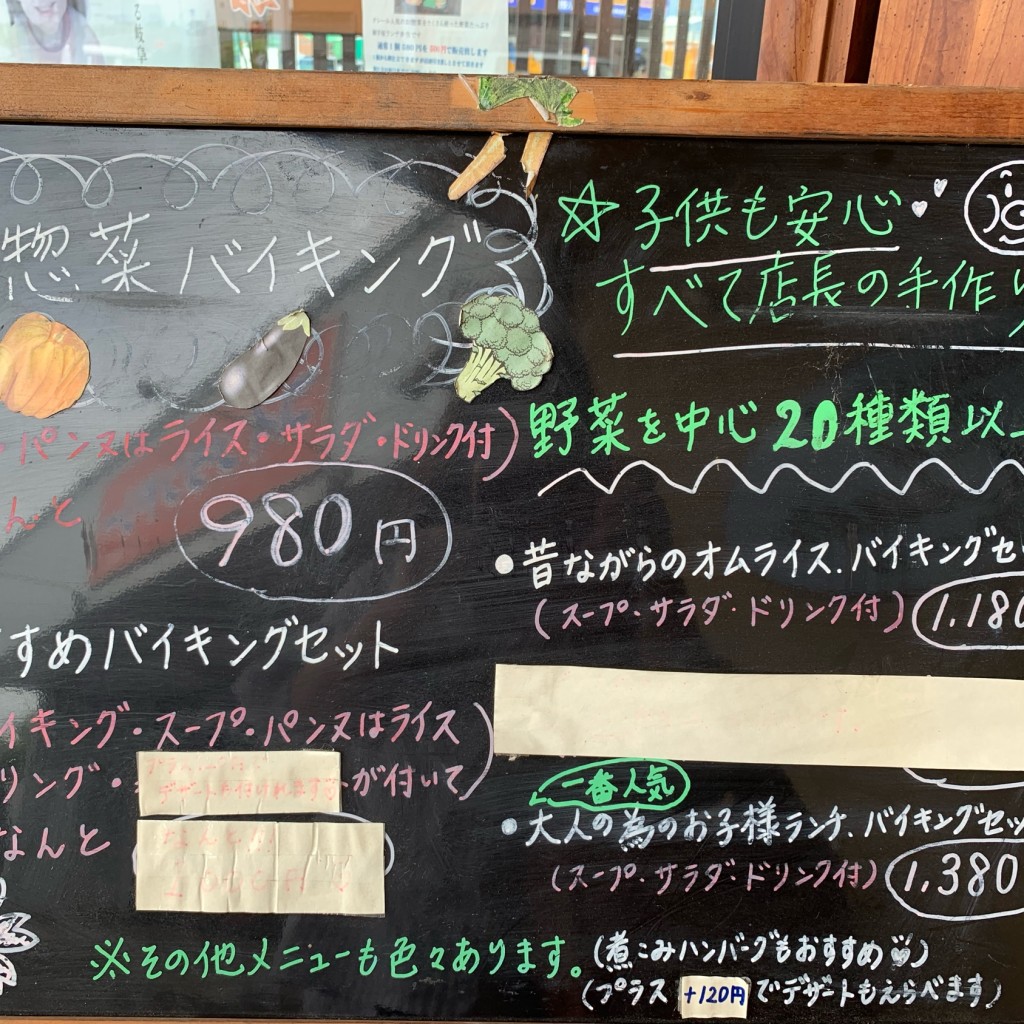 惣菜バイキング
・パンヌはライス・サラダ・ドリンク付)
んと
980円
すめバイキングセット
イキング・スープ・パンヌはライス
リング・
が付いて)
なんと
☆子供も安心
すべて店長の手作り
野菜を中心20種類以上
・昔ながらのオムライス.バイキングセ
(スープ・サラダ・ドリンク付)
1.180
一番人気
・大人の為のお子様ランチ、バイキングセッ
(スープ・サラダ・ドリンク付)
1.380
※その他メニューも色々あります。
(煮こみハンバーグもおすすめ♡)
(プラス+120円でデザートもえらべます)